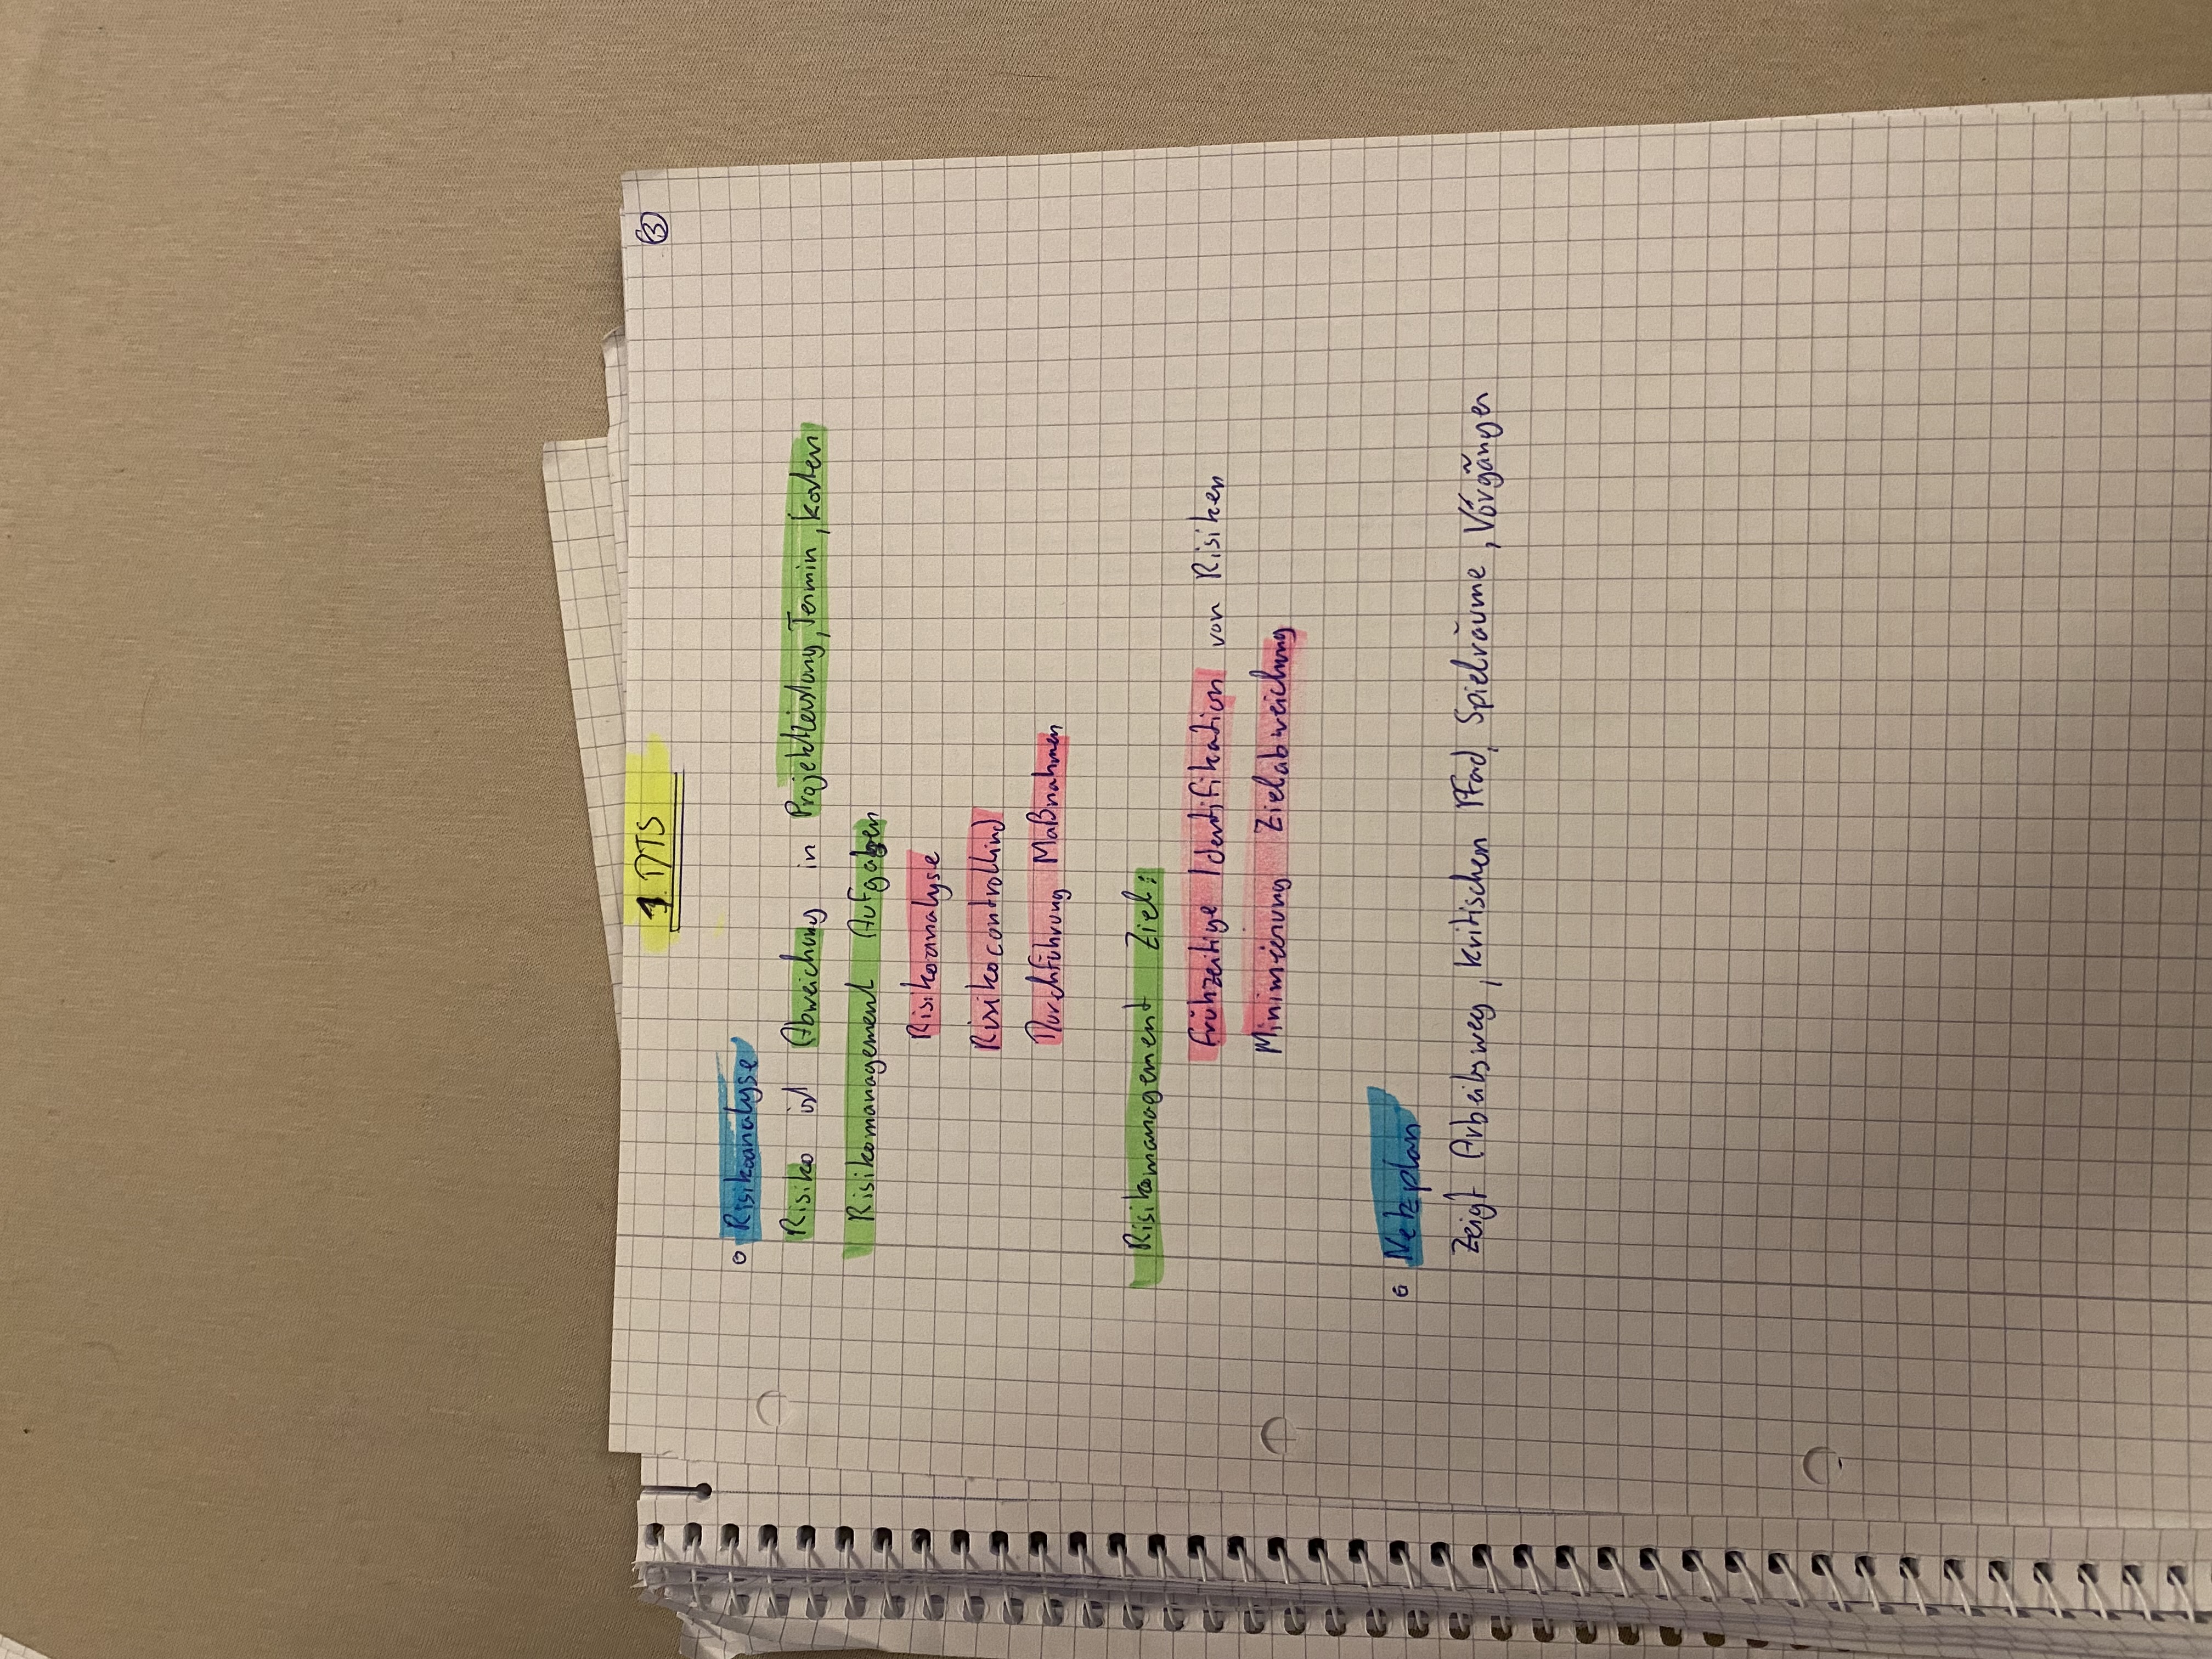 1. DTS
3
Risikoanalyse
Risiko ist Abweichung in Projektleistung, Termin, Kosten
Risikomanagement Aufgaben
Risikoanalyse
Risikocontrollind
Durchführung Maßnahmen
Risikomanagement Ziel:
Frühzeitige Identifikation von Risiken
Minimierung Zielabweichung
Netzplan
Zeigt Arbeitsweg, kritischen Pfad, Spielräume, Vorgänger